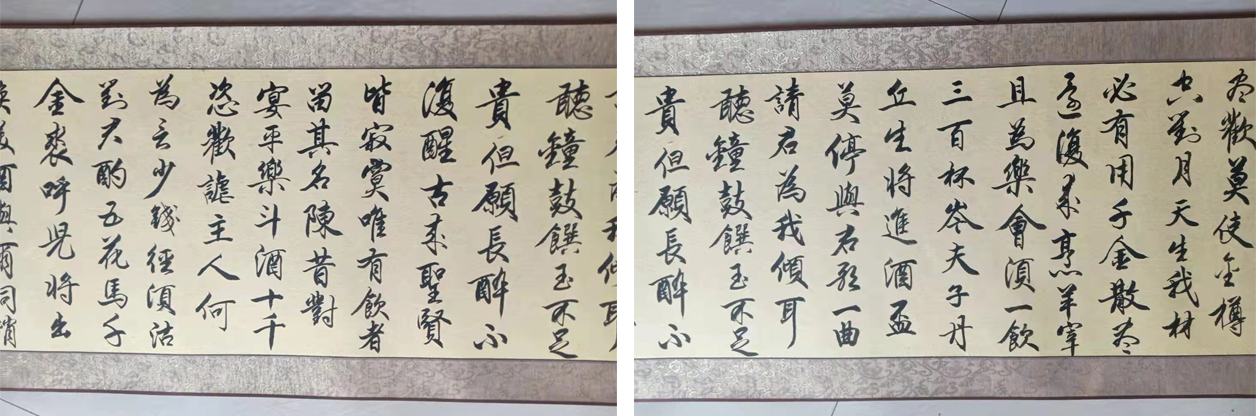 尽歡莫使金樽
空對月天生我材
必有用千金散尽
還復來烹羊宰
且為樂會須一飲
三百杯岑夫子丹
丘生將進酒盃
莫停與君歌一曲
請君為我傾耳
聽鐘鼓饌玉不足
貴但願長醉不
聽鐘鼓饌玉不足
貴但願長醉不
復醒古來聖賢
皆寂寞唯有飲者
留其名陳昔對
宴平樂斗酒十千
恣歡謔主人何
為言少錢徑須沽
對君酌五花馬千
金裘呼児將出
酒與爾同銷